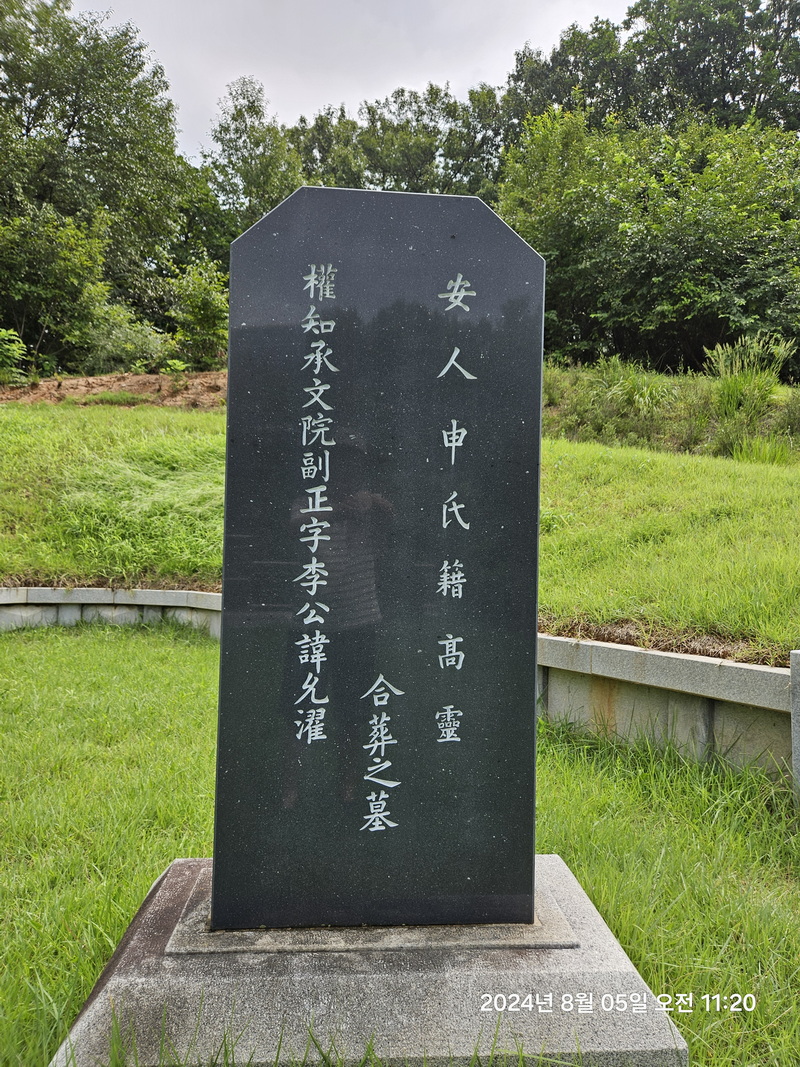 安人申氏籍高靈
合葬之墓
權知承文院副正字李公諱允濯
2024년 8월 05일 오전 11:20